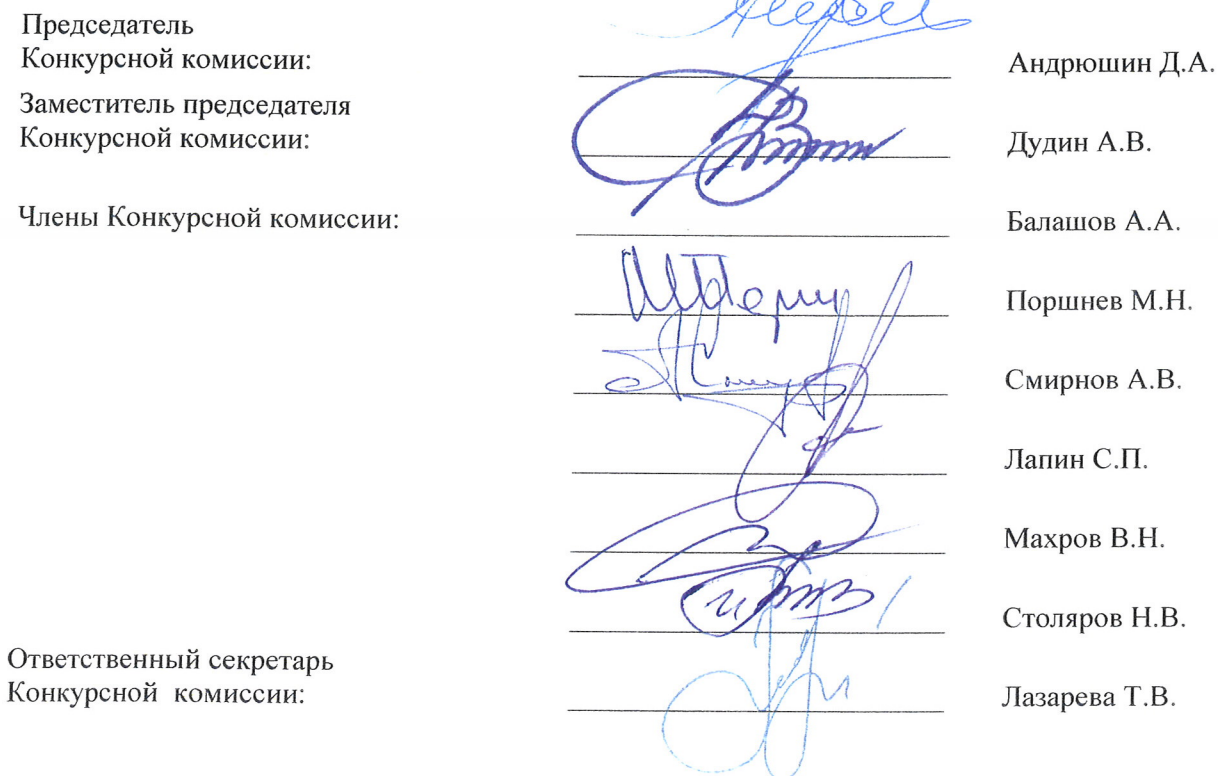 Председатель
Конкурсной комиссии: Андрюшин Д.А.
Заместитель председателя
Конкурсной комиссии: Дудин А.В.
Члены Конкурсной комиссии: Балашов А.А.
Поршнев М.Н.
Смирнов А.В.
Лапин С.П.
Махров В.Н.
Столяров Н.В.
Ответственный секретарь
Конкурсной комиссии: Лазарева Т.В.